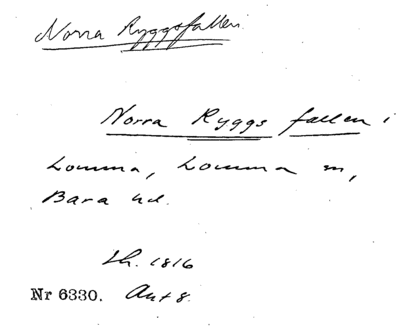 Norra Ryggsfallen
Norra Ryggs fallen i
Lomma, Lomma sn,
Bara hd.
Sh. 1816
Nr 6330. Akt 8.